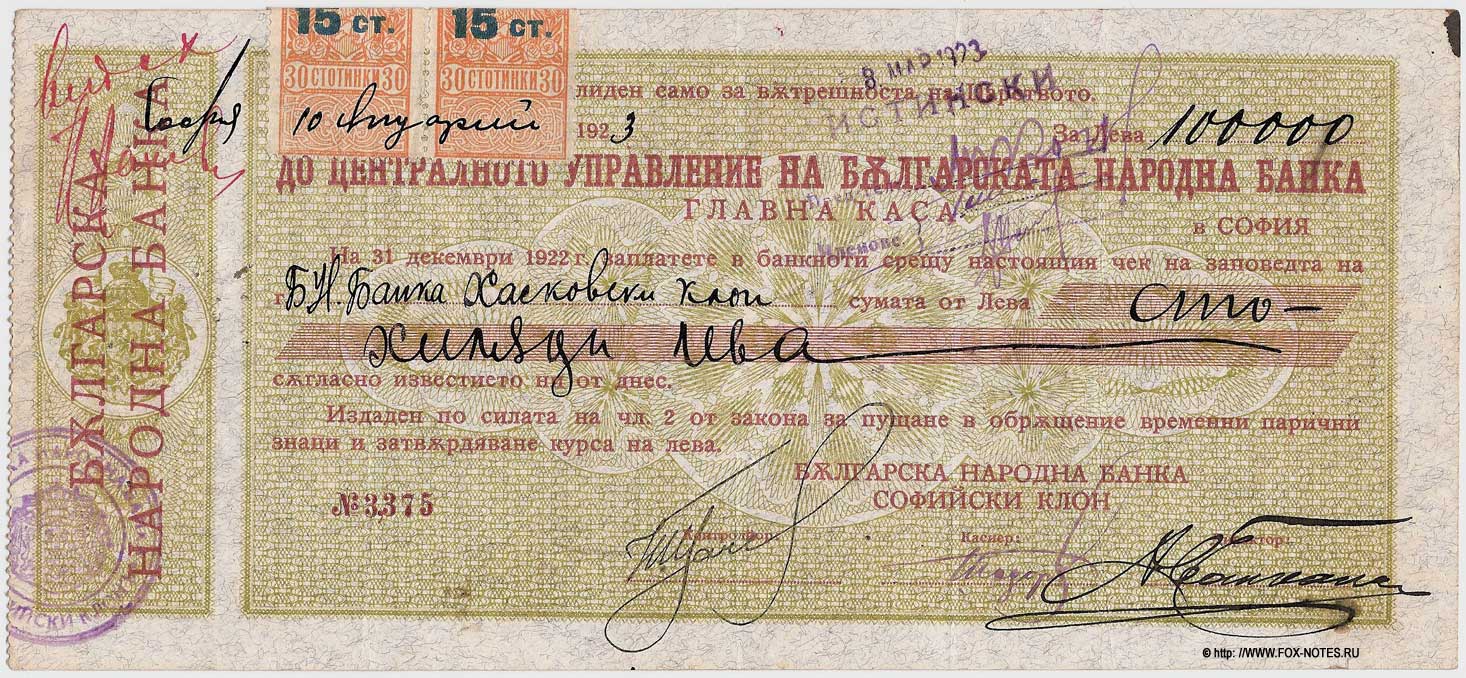 15 ст. 15 ст.
30 СТОТИНКИ 30 30 СТОТИНКИ 30
БѪЛГАРСКА
НАРОДНА БАНКА
8 МАР 1923
ИСТИНСКИ
лиден само за вѫтрешноста на Царството.
София 10 януарий 1923 За Лева 100000
ДО ЦЕНТРАЛНОТО УПРАВЛЕНИЕ НА БѪЛГАРСКАТА НАРОДНА БАНКА
ГЛАВНА КАСА
в СОФИЯ
Членове
На 31 декември 1922 г. заплатете в банкноти срещу настоящия чек на заповедта на
г Б Н. Банка Хасковски клон сумата от Лева Сто –
хиляди лева
сѫгласно известието ни от днес.
Издаден по силата на чл. 2 от закона за пущане в обрѫщение временни парични
знаци и затвѫрдяване курса на лева.
БѪЛГАРСКА НАРОДНА БАНКА
СОФИЙСКИ КЛОН
№ 3,375
Контрольор: Касиер: Директор:
© http: //WWW.FOX-NOTES.RU